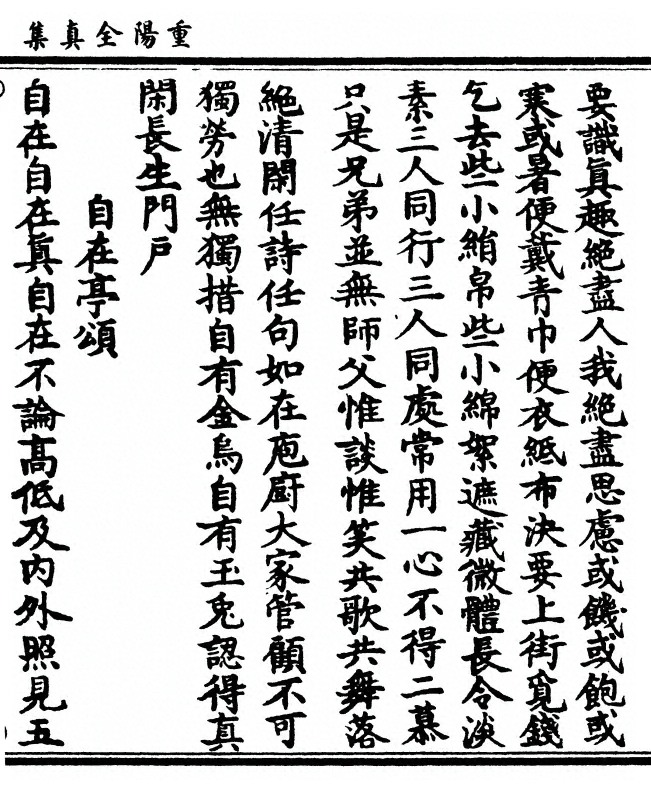 重陽全真集
要識真趣絶盡人我絶盡思慮或饑或飽或
寒或暑便戴青巾便衣紙布決要上街覓錢
乞去些小綃帛些小綿絮遮藏微體長令淡
素三人同行三人同處常用一心不得二慕
只是兄弟並無師父惟談惟笑共歌共舞落
絶清閑任詩任句如在庖廚大家管顧不可
獨勞也無獨措自有金烏自有玉兔認得真
閑長生門戶
自在亭頌
自在自在真自在不論高低及内外照見五